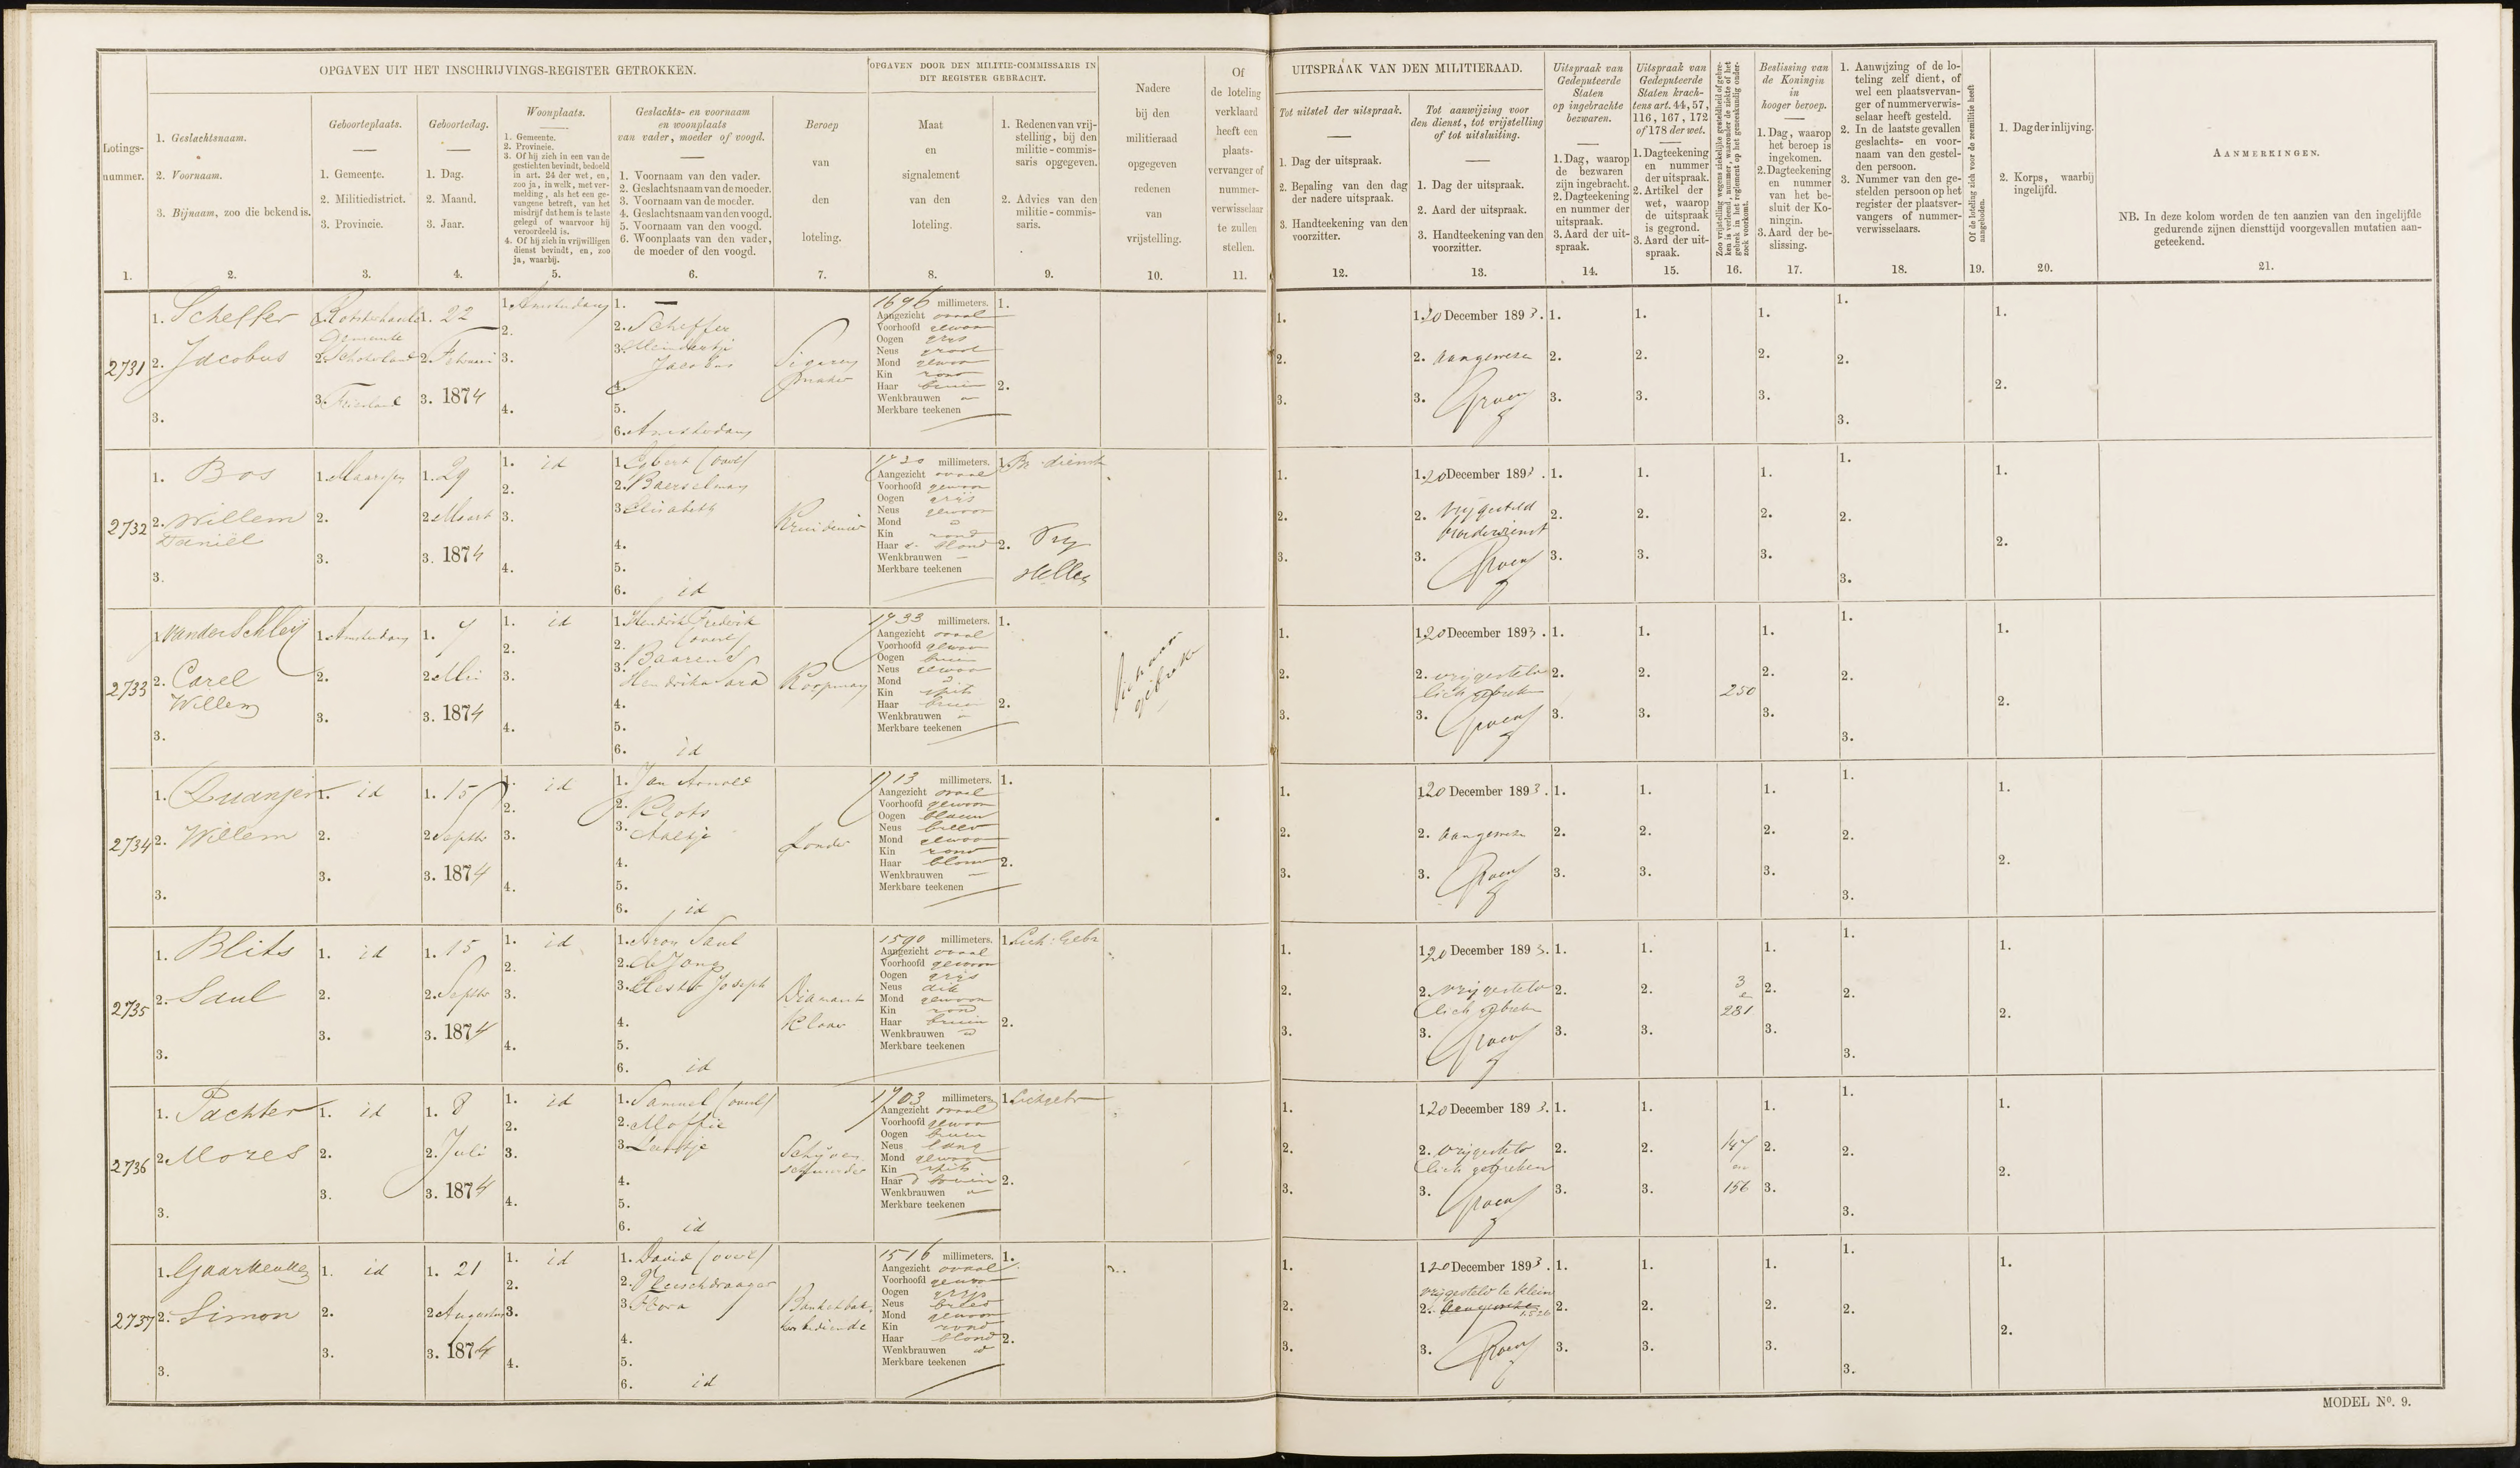 OPGAVEN UIT HET INSCHRIJVINGS-REGISTER GETROKKEN.
OPGAVEN DOOR DEN MILITIE-COMMISSARIS IN
DIT REGISTER GEBRACHT.
Lotings-
nummer.
1.
1. Geslachtsnaam.
2. Voornaam.
3. Bijnaam, zoo die bekend is.
2.
Geboorteplaats.
1. Gemeente.
2. Militiedistrict.
3. Provincie.
3.
Geboortedag.
1. Dag.
2. Maand.
3. Jaar.
4.
Woonplaats.
1. Gemeente.
2. Provincie.
3. Of hij zich in een van de
gestichten bevindt, bedoeld
in art. 24 der wet, en,
zoo ja, in welk, met ver-
melding, als het een ge-
vangene betreft, van het
misdrijf dat hem is te laste
gelegd of waarvoor hij
veroordeeld is.
4. Of hij zich in vrijwilligen
dienst bevindt, en, zoo
ja, waarbij.
5.
Geslachts- en voornaam
en woonplaats
van vader, moeder of voogd.
1. Voornaam van den vader.
2. Geslachtsnaam van de moeder.
3. Voornaam van de moeder.
4. Geslachtsnaam van den voogd.
5. Voornaam van den voogd.
6. Woonplaats van den vader,
de moeder of den voogd.
6.
Beroep
van
den
loteling.
7.
Maat
en
signalement
van den
loteling.
8.
1. Redenen van vrij-
stelling, bij den
militie-commis-
saris opgegeven.
2. Advies van den
militie-commis-
saris.
9.
Nadere
bij den
militieraad
opgegeven
redenen
van
vrijstelling.
10.
Of
de loteling
verklaard
heeft een
plaats-
vervanger of
nummer-
verwisselaar
te zullen
stellen.
11.
UITSPRAAK VAN DEN MILITIERAAD.
Tot uitstel der uitspraak.
1. Dag der uitspraak.
2. Bepaling van den dag
der nadere uitspraak.
3. Handteekening van den
voorzitter.
12.
Tot aanwijzing voor
den dienst, tot vrijstelling
of tot uitsluiting.
1. Dag der uitspraak.
2. Aard der uitspraak.
3. Handteekening van den
voorzitter.
13.
Uitspraak van
Gedeputeerde
Staten
op ingebrachte
bezwaren.
1. Dag, waarop
de bezwaren
zijn ingebracht.
2. Dagteekening
en nummer der
uitspraak.
3. Aard der uit-
spraak.
14.
Uitspraak van
Gedeputeerde
Staten krach-
tens art. 44, 57,
116, 167, 172
of 178 der wet.
1. Dagteekening
en nummer
der uitspraak.
2. Artikel der
wet, waarop
de uitspraak
is gegrond.
3. Aard der uit-
spraak.
15.
Zoo vrijstelling wegens ziekelijke gesteldheid of gebre-
ken is verleend, nummer, waaronder de ziekte of het
gebrek in het reglement op het geneeskundig onder-
zoek voorkomt.
16.
Beslissing van
de Koningin
in
hooger beroep.
1. Dag, waarop
het beroep is
ingekomen.
2. Dagteekening
en nummer
van het be-
sluit der Ko-
ningin.
3. Aard der be-
slissing.
17.
1. Aanwijzing of de lo-
teling zelf dient, of
wel een plaatsvervan-
ger of nummerverwis-
selaar heeft gesteld.
2. In de laatste gevallen
geslachts- en voor-
naam van den gestel-
den persoon.
3. Nummer van den ge-
stelden persoon op het
register der plaatsver-
vangers of nummer-
verwisselaars.
18.
Of de loteling zich voor de zeemilitie heeft
aangeboden.
19.
1. Dag der inlijving.
2. Korps, waarbij
ingelijfd.
20.
AANMERKINGEN.
NB. In deze kolom worden de ten aanzien van den ingelijfde
gedurende zijnen diensttijd voorgevallen mutatien aan-
geteekend.
21.
2731
1. Scheffer
2. Jacobus
3.
Gemeente
2. Schoterland
3. Friesland
1. 22
2. Februari
3. 1874
1. Amsterdam
2.
3.
4.
1. —
2. Scheffer
3. Meindertje
Jacobus
4.
5.
6. Amsterdam
Sigaren
maker
1696 millimeters.
Aangezicht ovaal
Voorhoofd gewoon
Oogen grijs
Neus groot
Mond gewoon
Kin rond
Haar bruin
Wenkbrauwen
Merkbare teekenen
1.
2.
1. 20 December 1893.
2. Aangewezen
3.
2732
1. Bos
2. Willem
Daniël
3.
1. Maarssen
2.
3.
1. 29
2 Maart
3. 1874
1. id
2.
3.
4.
1. Gijbert (overl)
2. Baerselman
3 Elisabeth
4.
5.
6. id
Kruidenier
1720 millimeters.
Aangezicht ovaal
Voorhoofd gewoon
Oogen grijs
Neus gewoon
Mond
Kin rond
Haar d. blond
Wenkbrauwen
Merkbare teekenen
1. Br dienst
2. Vrij
stellen
1. 20 December 1893.
2. Vrijgesteld
broederdienst
3.
2733
1 van der Schleij
2. Carel
Willem
3.
1. Amsterdam
2.
3.
1. 7
2 Mei
3. 1874
1. id
2.
3.
4.
1. Hendrik Frederik
(overl)
2. Baarend
3. Hendrika Sara
4.
5.
6. id
Koopman
1733 millimeters.
Aangezicht ovaal
Voorhoofd gewoon
Oogen bruin
Neus gewoon
Mond
Kin spits
Haar bruin
Wenkbrauwen
Merkbare teekenen
1.
2.
gebreken
1. 20 December 1893.
2. vrijgesteld
lich gebreken
3.
250
2734
1. Quanjer
2. Willem
3.
1. id
2.
3.
1. 15
2 Septbr
3. 1874
1. id
2.
3.
4.
1. Jan Arnold
2. Klots
3. Aaltje
4.
5.
6. id
Zonder
1713 millimeters.
Aangezicht ovaal
Voorhoofd gewoon
Oogen blauw
Neus breed
Mond gewoon
Kin rond
Haar blond
Wenkbrauwen
Merkbare teekenen
1.
2.
1. 20 December 1893.
2. Aangewezen
3.
2735
1. Blits
2. Saul
3.
1. id
2.
3.
1. 15
2. Septbr
3. 1874
1. id
2.
3.
4.
1. Aron Saul
2. de Jong
3. Hester Joseph
4.
5.
6. id
Diamant
Klover
1590 millimeters.
Aangezicht ovaal
Voorhoofd gewoon
Oogen grijs
Neus dik
Mond gewoon
Kin rond
Haar bruin
Wenkbrauwen id
Merkbare teekenen
1. Lich: Gebr
2.
1. 20 December 1893.
2. vrijgesteld
lich gebreken
3.
3
en
281
2736
1. Pachter
2. Mozes
3.
1. id
2.
3.
1. 8
2. Juli
3. 1874
1. id
2.
3.
4.
1. Samuel (overl)
2. Moffie
3. Leentje
4.
5.
6. id
Schijven
schuurder
1703 millimeters.
Aangezicht ovaal
Voorhoofd gewoon
Oogen bruin
Neus lang
Mond gewoon
Kin spits
Haar d bruin
Wenkbrauwen
Merkbare teekenen
1. Lich gebr
2.
1. 20 December 1893.
2. vrijgesteld
lich gebreken
3.
147
en
156
2737
1. Gaarkeuken
2. Simon
3.
1. id
2.
3.
1. 21
2 Augustus
3. 1874
1. id
2.
3.
4.
1. David (overl)
2. Vleeschdraager
3. Flora
4.
5.
6. id
Banketbak-
kers bediende
1516 millimeters.
Aangezicht ovaal
Voorhoofd gewoon
Oogen grijs
Neus breed
Mond gewoon
Kin rond
Haar blond
Wenkbrauwen id
Merkbare teekenen
1.
2.
1. 20 December 1893.
vrijgesteld te klein
2. Aangewezen 1526
3.
MODEL No. 9.